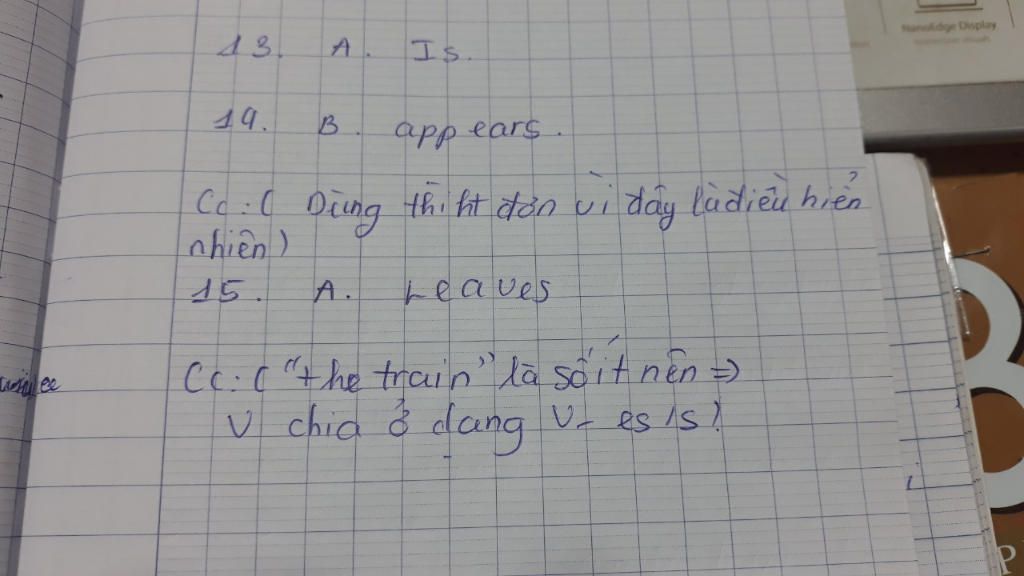 NanoEdge Display
13. A. Is.
14. B. appears.
Cc: ( Dùng thì ht đơn vì đây là điều hiển
nhiên)
15. A. Leaves
Cc: ( "the train" là số ít nên ⇒
V chia ở dạng V- es/s)